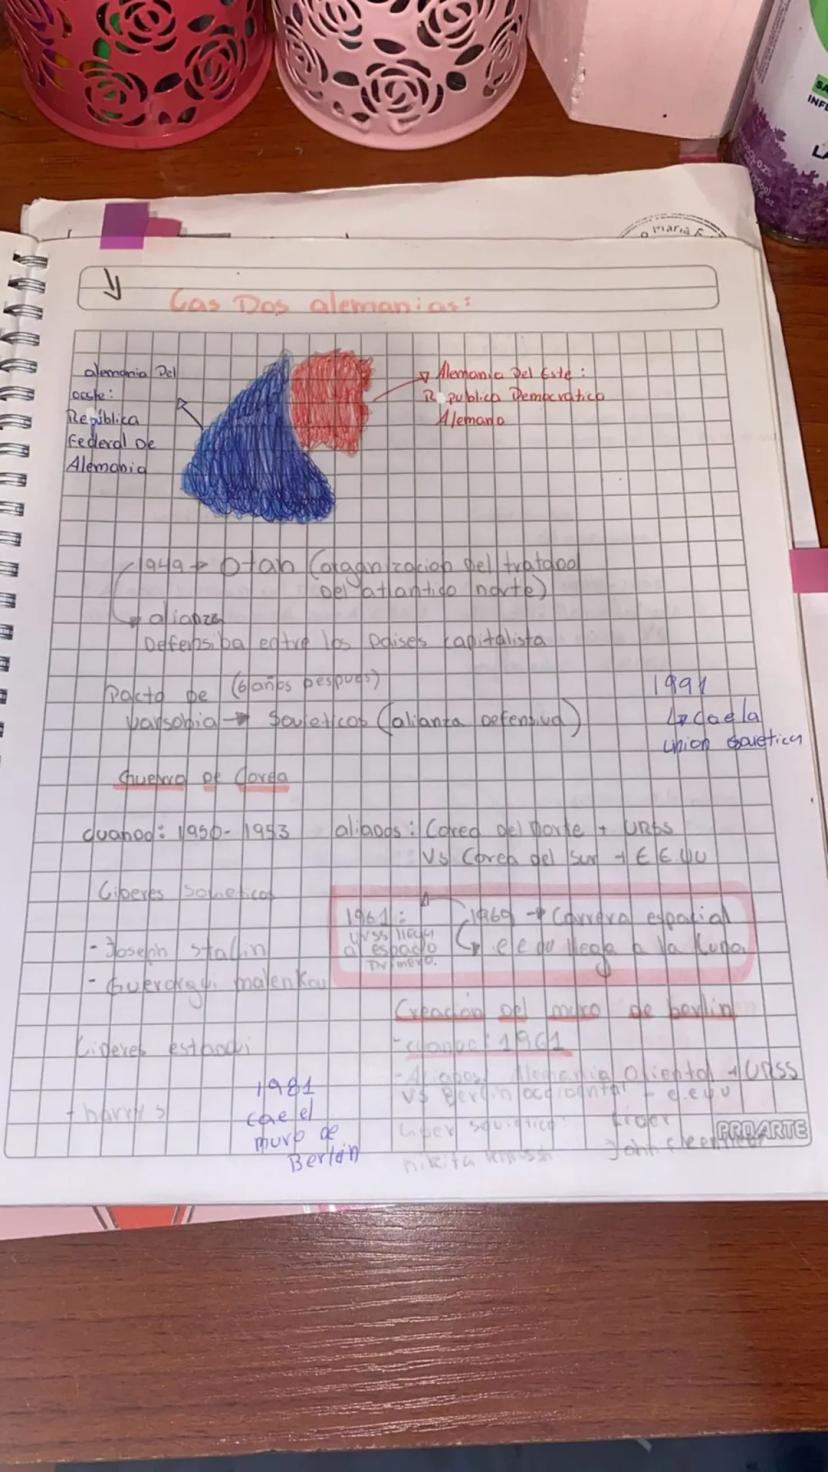 SA
INF
L
o Maria F
Las Dos alemanias:
alemania Del
oeste:
República
Federal De
Alemania
Alemania Del Este:
Republica Democratica
Alemana
1949 → Otan (organizacion Del tratado
Del atlantico norte)
→ alianza
Defensiba entre los paises capitalista
Pacto De (6 años Despues)
Varsobia → Sovieticos (alianza Defensiva)
1991
↳ cae la
union Sovietica
Guerra De Corea
cuando: 1950-1953
aliados: Corea del Norte + URSS
VS Corea del Sur + E E.UU
Lideres Sovieticos
- Joseph Stalin
- Guerorgui malenkov
1961:
URSS llega
al espacio
Primero.
1969 → Carrera espacial
↳ e e uu llega a la Luna
Creacion del muro de berlin
- cuando: 1961
- Aliados Alemania Oriental + URSS
VS Berlin occidental - e.e.u.u
Lider sovietico:
nikita
Lider
John
Lideres estadu
- harry s
1981
cae el
muro de
Berlin
PROARTE